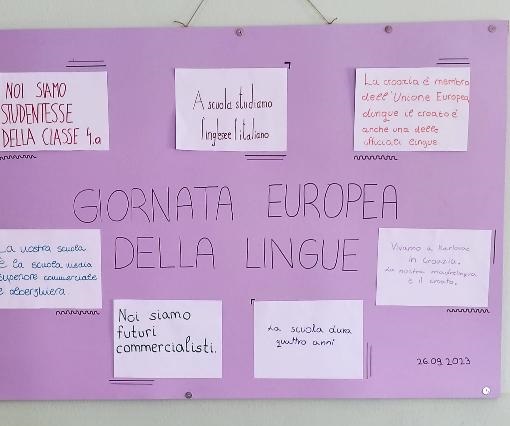 NOI SIAMO
STUDENTESSE
DELLA CLASSE 4.a
A scuola studiamo
l'inglese l'italiano
La croazia è membro
dell'Unione Europea,
dunque il croato è
anche una delle
ufficiali lingue
GIORNATA EUROPEA
DELLA LINGUE
La nostra scuola
è la scuola media
superiore commerciale
e alberghiera.
Viviamo a Karlovac
in Croazia.
La nostra madrelingua
è il croato.
Noi siamo
futuri
commercialisti.
La scuola dura
quattro anni
26.09.2023